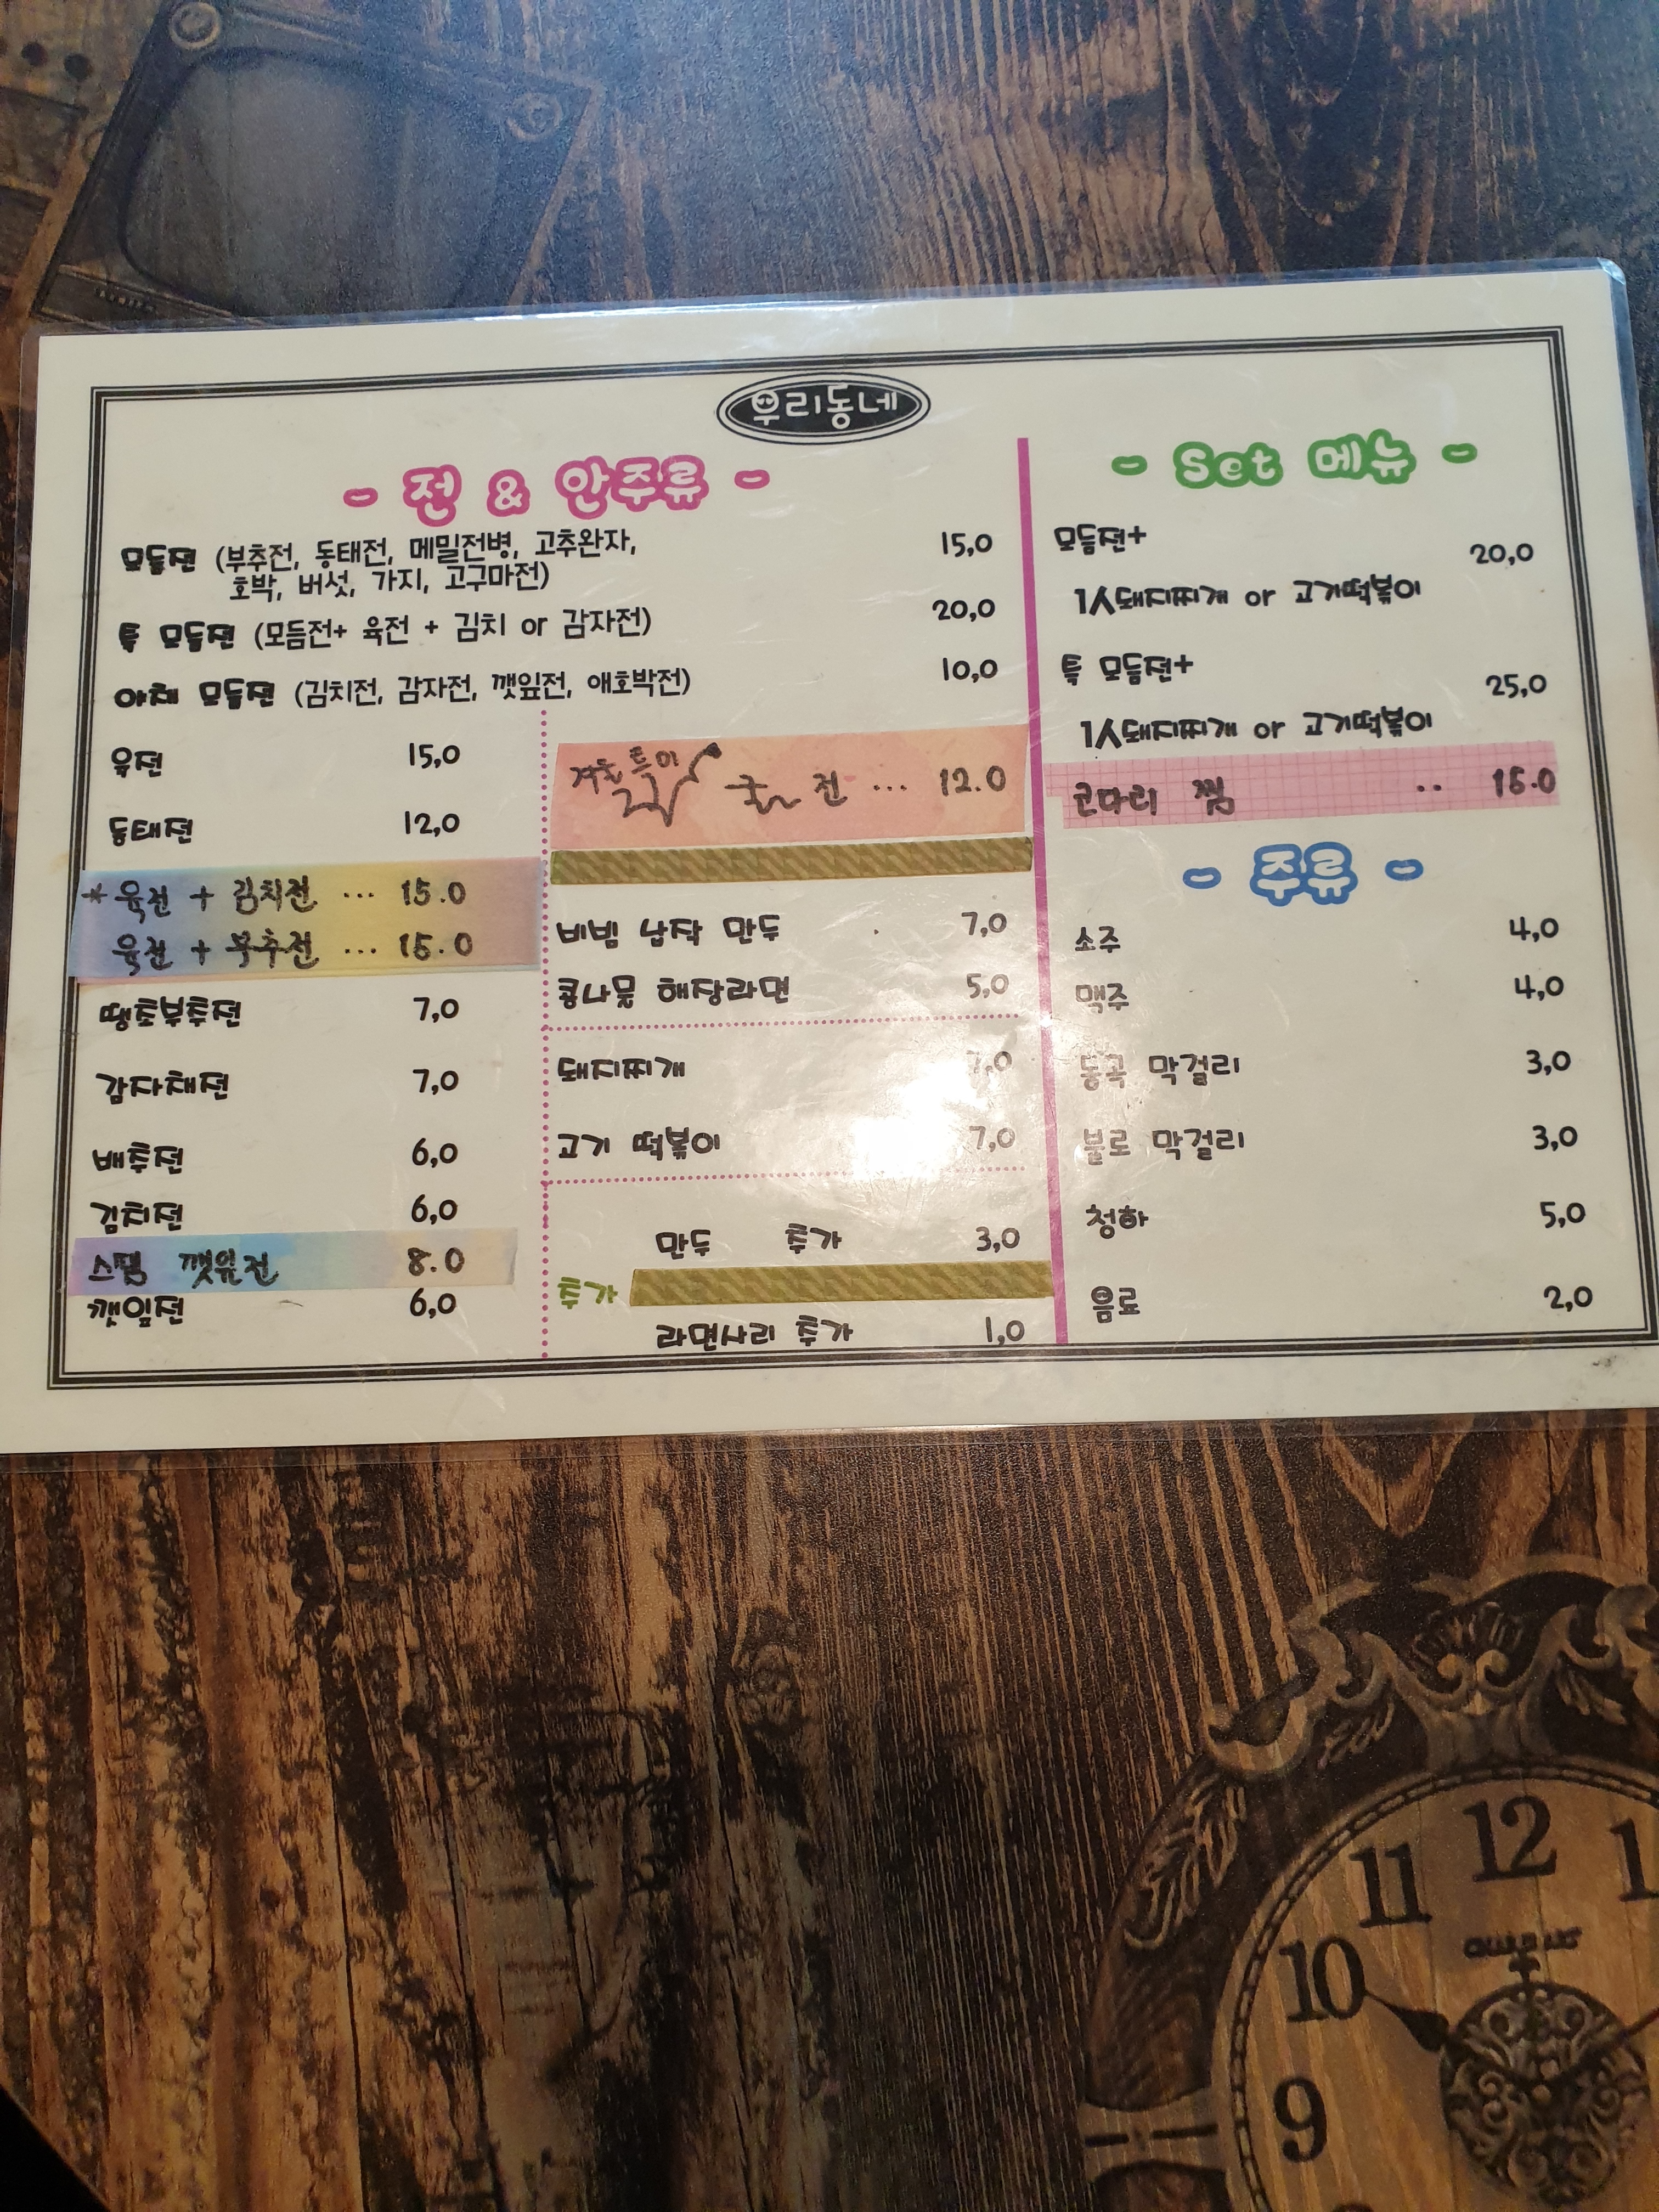 우리동네
- 전 & 안주류 -
모듬전 (부추전, 동태전, 메밀전병, 고추완자, 15,0
호박, 버섯, 가지, 고구마전)
특 모듬전 (모듬전+ 육전 + 김치 or 감자전) 20,0
야채 모듬전 (김치전, 감자전, 깻잎전, 애호박전) 10,0
육전 15,0
동태전 12,0
* 육전 + 김치전 ... 15.0
육전 + 부추전 ... 15.0
땡초부추전 7,0
감자채전 7,0
배추전 6,0
김치전 6,0
스팸 깻잎전 8.0
깻잎전 6,0
겨울 특미 굴전 ... 12.0
비빔 납작 만두 7,0
콩나물 해장라면 5,0
돼지찌개 7,0
고기 떡볶이 7,0
만두 추가 3,0
추가
라면사리 추가 1,0
- Set 메뉴 -
모듬전+ 20,0
1人돼지찌개 or 고기떡볶이
특 모듬전+ 25,0
1人돼지찌개 or 고기떡볶이
코다리 찜 .. 15.0
- 주류 -
소주 4,0
맥주 4,0
동곡 막걸리 3,0
불로 막걸리 3,0
청하 5,0
음료 2,0
12
11
10
9